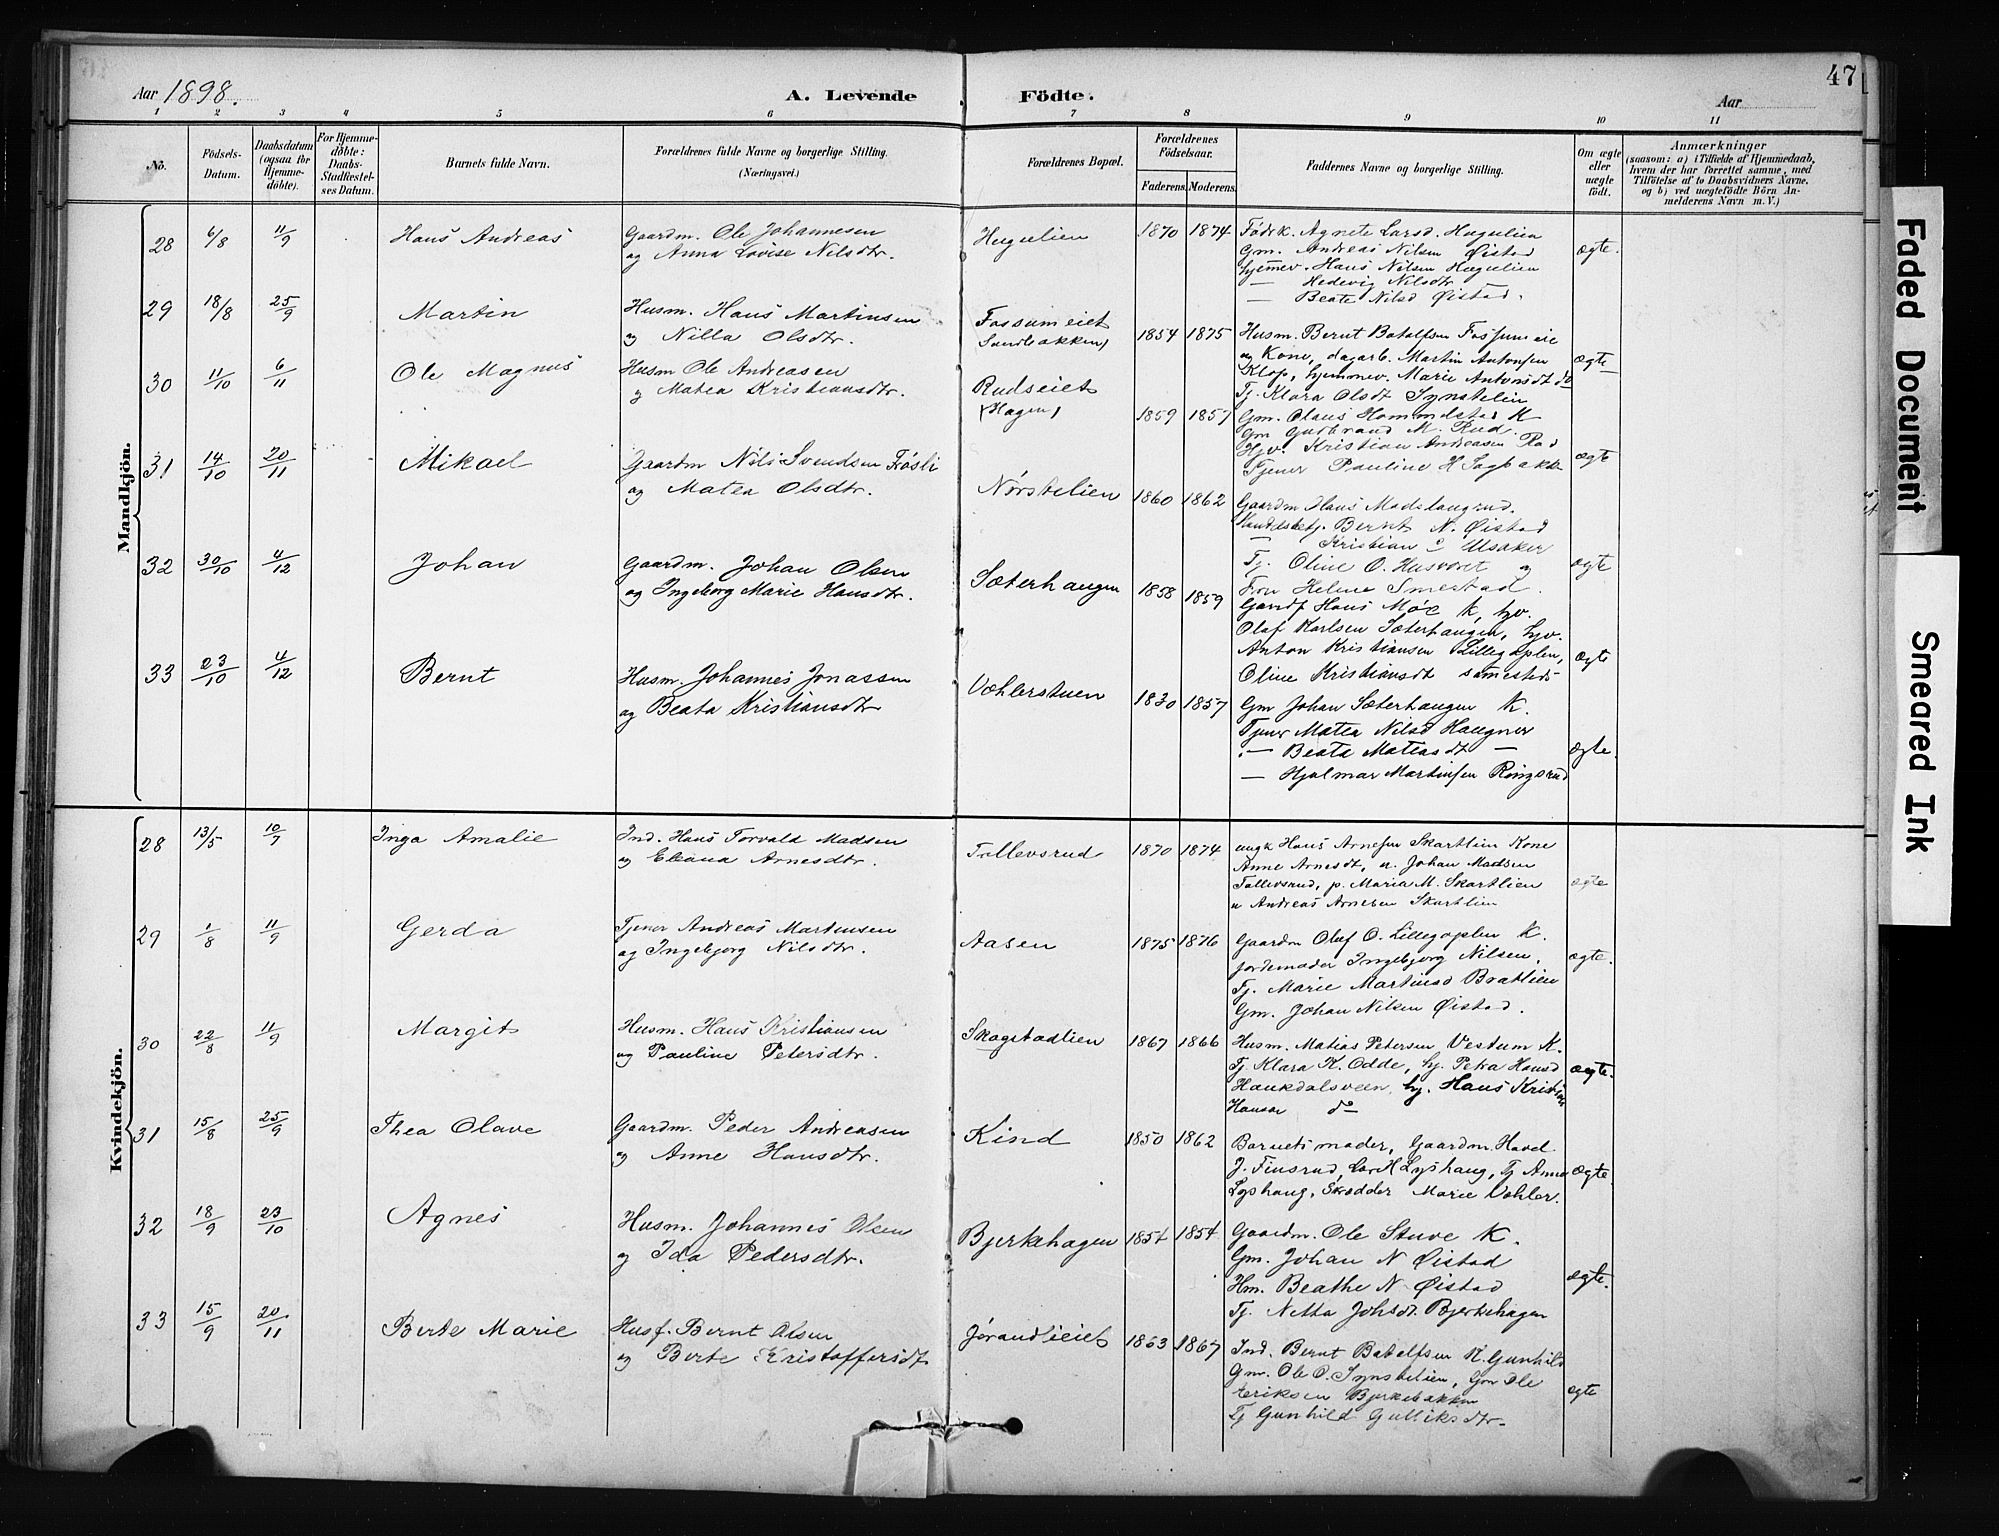 47
Aar 1898.
A. Levende Födte.
Aar
1 2 3 4 5 6 7 8 9 10 11
No.
Födsels-Datum.
Daabsdatum (ogsaa for Hjemme-döbte).
For Hjemme-döbte: Daabs-Stadfæstel-ses Datum.
Barnets fulde Navn.
Forældrenes fulde Navne og borgerlige Stilling.
(Næringsvei.)
Forældrenes Bopæl.
Forældrenes Födselsaar.
Faderens. Moderens.
Faddernes Navne og borgerlige Stilling.
Om ægte eller uægte födt.
Anmærkninger
(saasom: a) i Tilfælde af Hjemmedaab, hvem der har forrettet samme, med Tilföielse af to Daabsvidners Navne, og b) ved uægtefödte Börn An-melderens Navn m. V.)
Mandkjön.
28 6/8 11/9 Hans Andreas
Gaardm. Ole Johannesen
og Anna Lovise Nilsdtr.
Hugulien 1870 1874
Agnete Larsd. Hugulien
Gm. Andreas Nilsen Øistad
Hans Nilsen Hugulien
— Hedevig Nilsdtr
— Beate Nilsd Øistad.
ægte.
29 18/8 25/9 Martin
Husm. Hans Martinsen
og Nilla Olsdtr.
Fossumeiet
1854 1875
Husm. Bernt Botolfsen
og Kone, dagarb. Martin Antonsen
Klop, hjemmev. Marie Antonsdt do
Tj. Klara Olsdt Synstelien
ægte
30 11/10 6/11 Ole Magnus
Husm Ole Andreasen
og Matea Kristiansdtr.
Rudseiet
(Hagen)
1859 1857
Gm. Olaus Hammelstad K
Gm Gudbrand M. Rud.
Hjv. Kristian Andreasen Rud
Tjener Pauline H Sagbakke
ægte
31 14/10 20/11 Mikael
Gaardm Nils Svendsen Frøsli
og Matea Olsdtr.
Nørstelien 1860 1862
Gaardm Hans Madslangrud.
Bernt N. Øistad
— Kristian C Ulsaker
Tj. Oline O. Husvoret og
Fru Helene Smestad.
ægte
32 30/10 4/12 Johan
Gaardm. Johan Olsen
og Ingeborg Marie Hansdtr.
Sæterhaugen 1858 1859
Hans Moe K, hjv.
Olaf Karlsen Sæterhaugen, hjv.
Anton Kristiansen Lillegoplen,
Oline Kristiansdt samesteds
ægte
33 23/10 4/12 Bernt
Husm. Johannes Jonassen
og Beata Kristiansdtr
Vøhlerstuen 1830 1857
Gm Johan Sæterhaugen K.
Tjener Matea Nilsd Haugner
— Beata Mateasdt —
— Hjalmar Martinsen Ringsrud
ægte.
Kvindekjön.
28 13/5 10/7 Inga Amalie
Ind. Hans Torvald Madsen
og Eliana Arnesdtr.
Tollevsrud 1870 1874
Hans Arnesen Skartlien Kone
Anne Arnesdt, u. Johan Madsen
Tollevsrud, p. Maria M. Skartlien
u Andreas Arnesen Skartlien
ægte
29 1/8 11/9 Gerda
Tjener Andreas Martinsen
og Ingebjorg Nilsdtr.
Aasen 1875 1876
Gaardm Oluf O. Lillegoplen K.
jordemoder Ingebjorg Nilsen,
Tj. Marie Martinsd Bratlien
Gm. Johan Nilsen Øistad.
ægte.
30 22/8 11/9 Margit
Husm. Hans Kristiansen
og Pauline Petersdtr.
Skogstadlien 1867 1866
Husm. Matias Petersen Vestum K.
Tj Klara K. Odde, hj. Petra Hansd
Haukdalsveen, hj. Hans Kristian
Hansen do
ægte.
31 15/8 25/9 Thea Olave
Gaardm. Peder Andreasen
og Anne Hansdtr.
Kind 1850 1862
Barnets moder, Gaardm. Havel
J. Finsrud, Lars H Lyshaug, Tj Anna
Lyshaug, Skrædder Marie Vøhler.
ægte.
32 18/9 23/10 Agnes
Husm. Johannes Olsen
og Ida Pedersdtr.
Bjerkehagen 1854 1854
Gaardm. Ole Stuve K.
Gm. Johan N Øistad
Hm. Beathe N. Øistad
Tj. Netta Johsdt. Bjerkehagen
ægte.
33 15/9 20/11 Berte Marie
Husf. Bernt Olsen
og Berte Kristoffersdt
Jørandlieiet 1863 1867
Ind. Bernt Botolfsen K. Gunhild
Gm. Ole O. Synstelien, Gm Ole
Eriksen Bjerkebakken
Tj Gunhild Gulliksdtr.
ægte
Faded Document
Smeared Ink